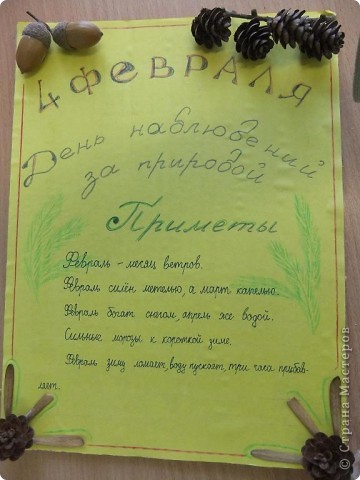 4 ФЕВРАЛЯ
День наблюдений
за природой
Приметы
Февраль - месяц ветров.
Февраль силён метелью, а март капелью.
Февраль богат снегом, апрель же водой.
Сильные морозы к короткой зиме.
Февраль зиму ломает, воду пускает, три часа прибав-
ляет.
© Страна Мастеров